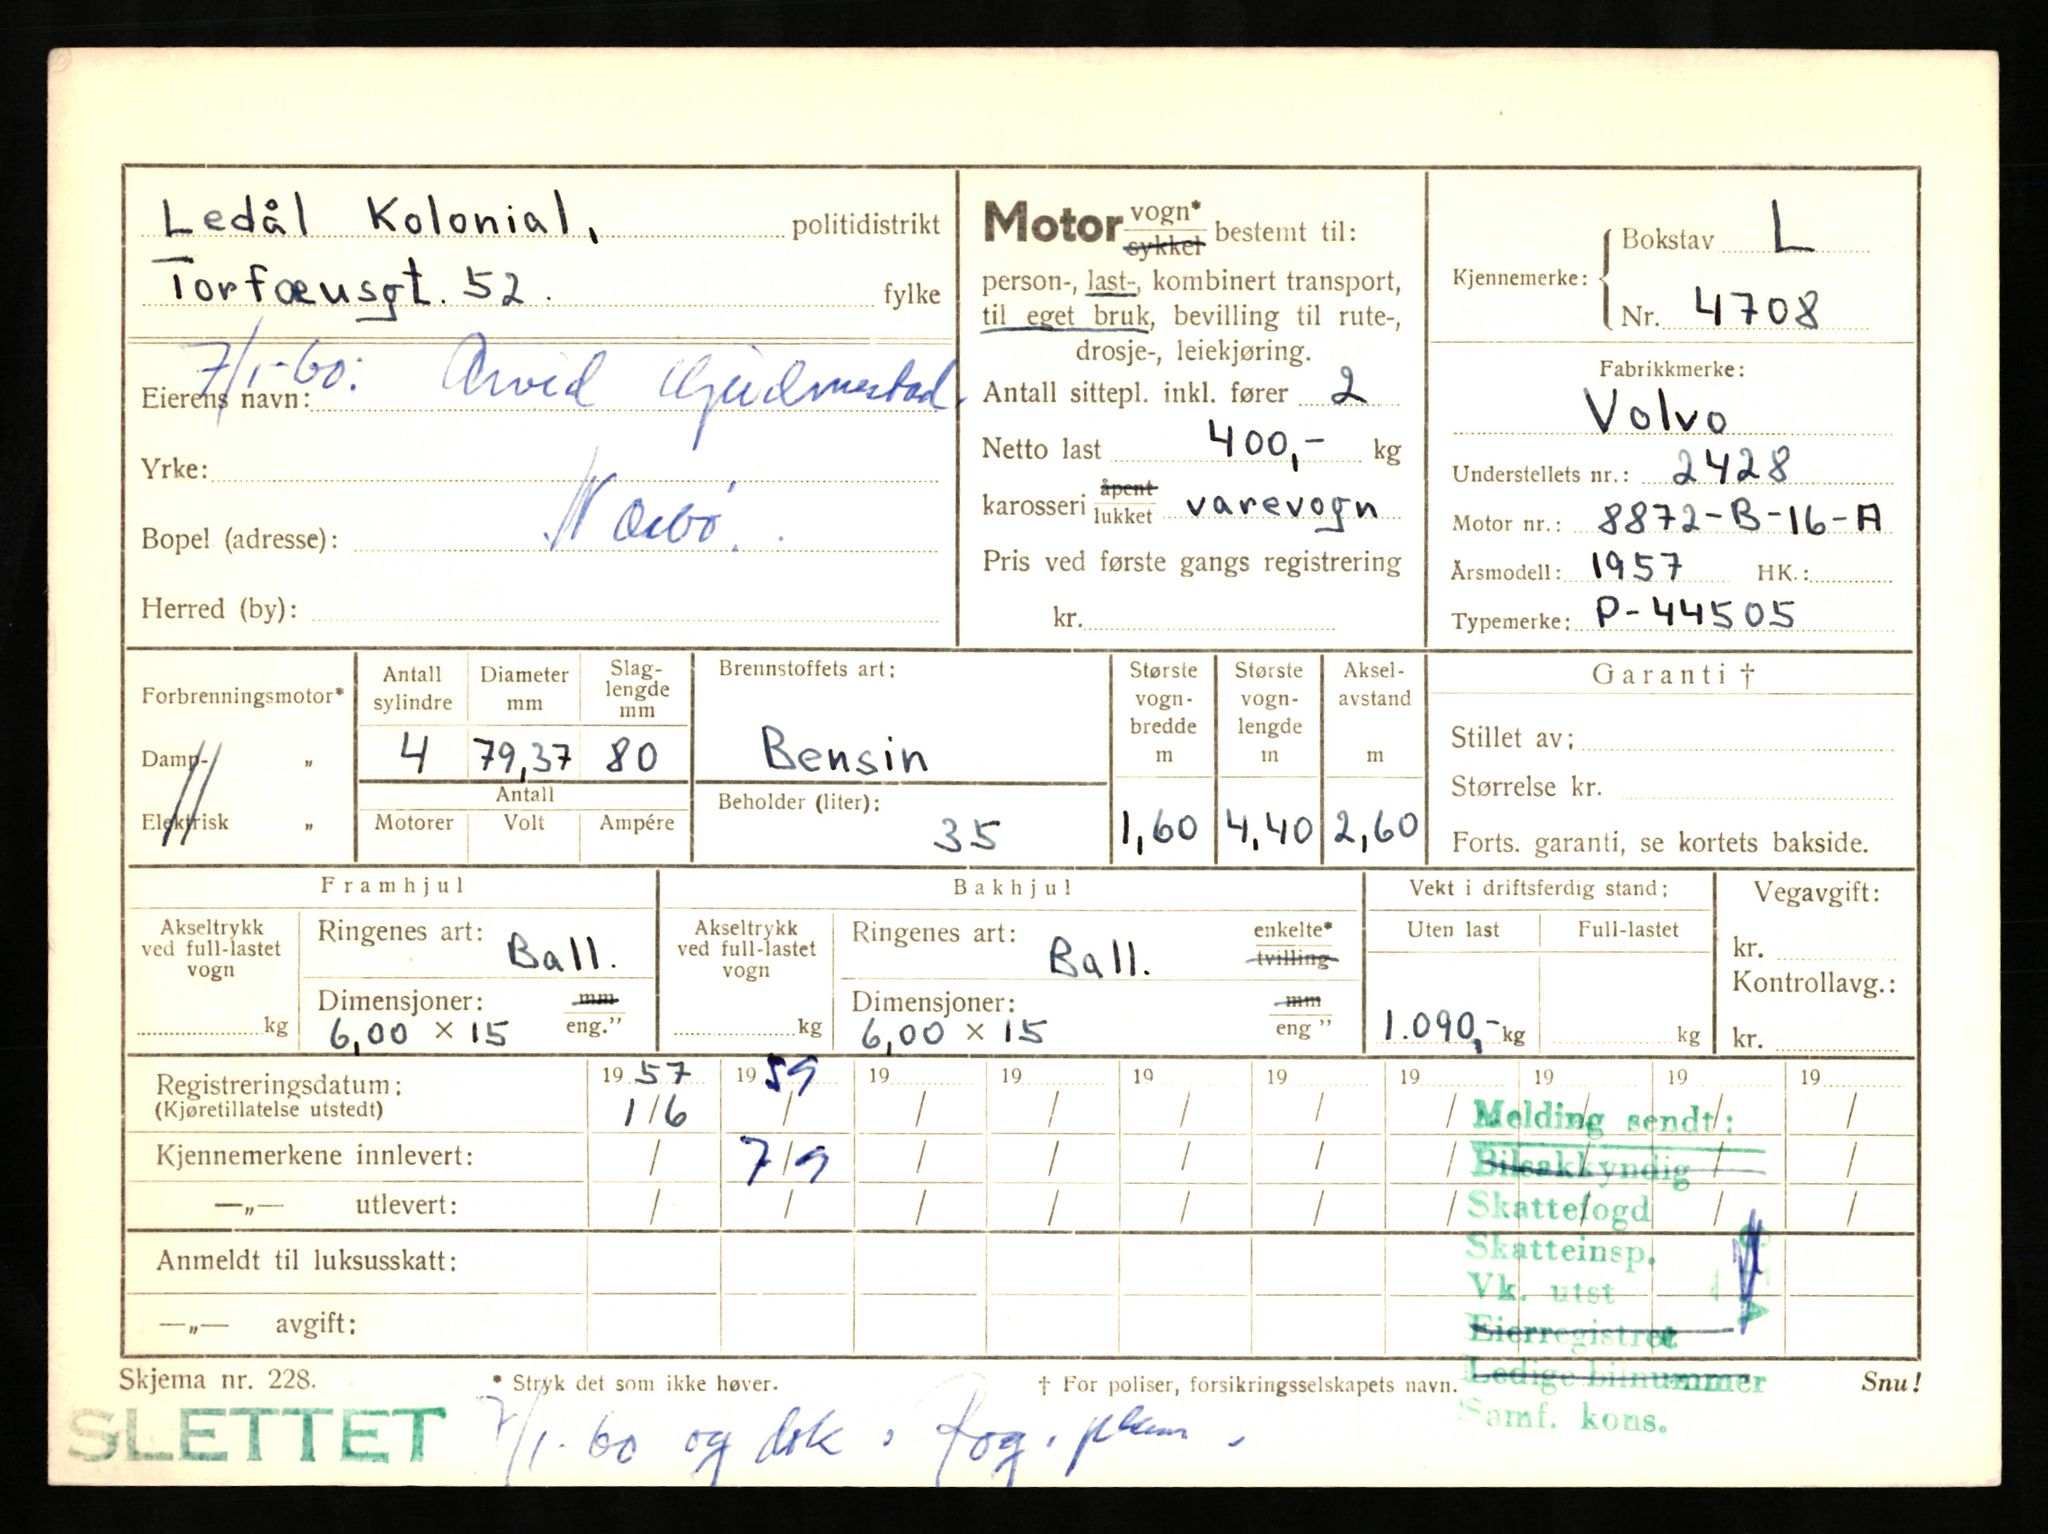 Ledål Kolonial, politidistrikt
Torfæusgt. 52. fylke
7/1-60: Arvid
Eierens navn:
Yrke:
Nærbø.
Bopel (adresse):
Herred (by):
Motor vogn* sykkel bestemt til:
person-, last-, kombinert transport,
til eget bruk, bevilling til rute-,
drosje-, leiekjøring.
Antall sittepl. inkl. fører 2
Netto last 400,- kg
karosseri åpent lukket varevogn
Pris ved første gangs registrering
kr.
Kjennemerke: Bokstav L
Nr. 4708
Fabrikkmerke:
Volvo
Understellets nr.: 2428
Motor nr.: 8872-B-16-A
Årsmodell: 1957 HK.:
Typemerke: P-44505
Forbrenningsmotor*
Damp- „
Elektrisk „
Antall sylindre Diameter mm Slag-lengde mm
4 79,37 80
Antall
Motorer Volt Ampére
Brennstoffets art:
Bensin
Beholder (liter):
35
Største vogn-bredde m
1,60
Største vogn-lengde m
4,40
Aksel-avstand m
2,60
Garanti †
Stillet av:
Størrelse kr.
Forts. garanti, se kortets bakside.
Framhjul
Akseltrykk ved full-lastet vogn
kg
Ringenes art: Ball.
Dimensjoner: mm
6,00 × 15 eng.”
Bakhjul
Akseltrykk ved full-lastet vogn
kg
Ringenes art: Ball. enkelte* tvilling
Dimensjoner: mm
6,00 × 15 eng ”
Vekt i driftsferdig stand:
Uten last Full-lastet
1.090,- kg kg
Vegavgift:
kr.
Kontrollavg.:
kr.
Registreringsdatum: 1957 1959 19 19 19 19 19 19 19 19
(Kjøretillatelse utstedt) 1/6 / / / / / / / / /
Kjennemerkene innlevert: / 7/9 / / / / / / / /
—„— utlevert: / / / / / / / / / /
Anmeldt til luksusskatt:
—„— avgift:
Melding sendt:
Bilsakkyndig
Skattefogd
Skatteinsp.
Vk. utst
Eierregistret
Ledige bilnummer
Samf. kons.
Skjema nr. 228. * Stryk det som ikke høver. † For poliser, forsikringsselskapets navn. Snu!
SLETTET
7/1-60 og dsk. Rog.